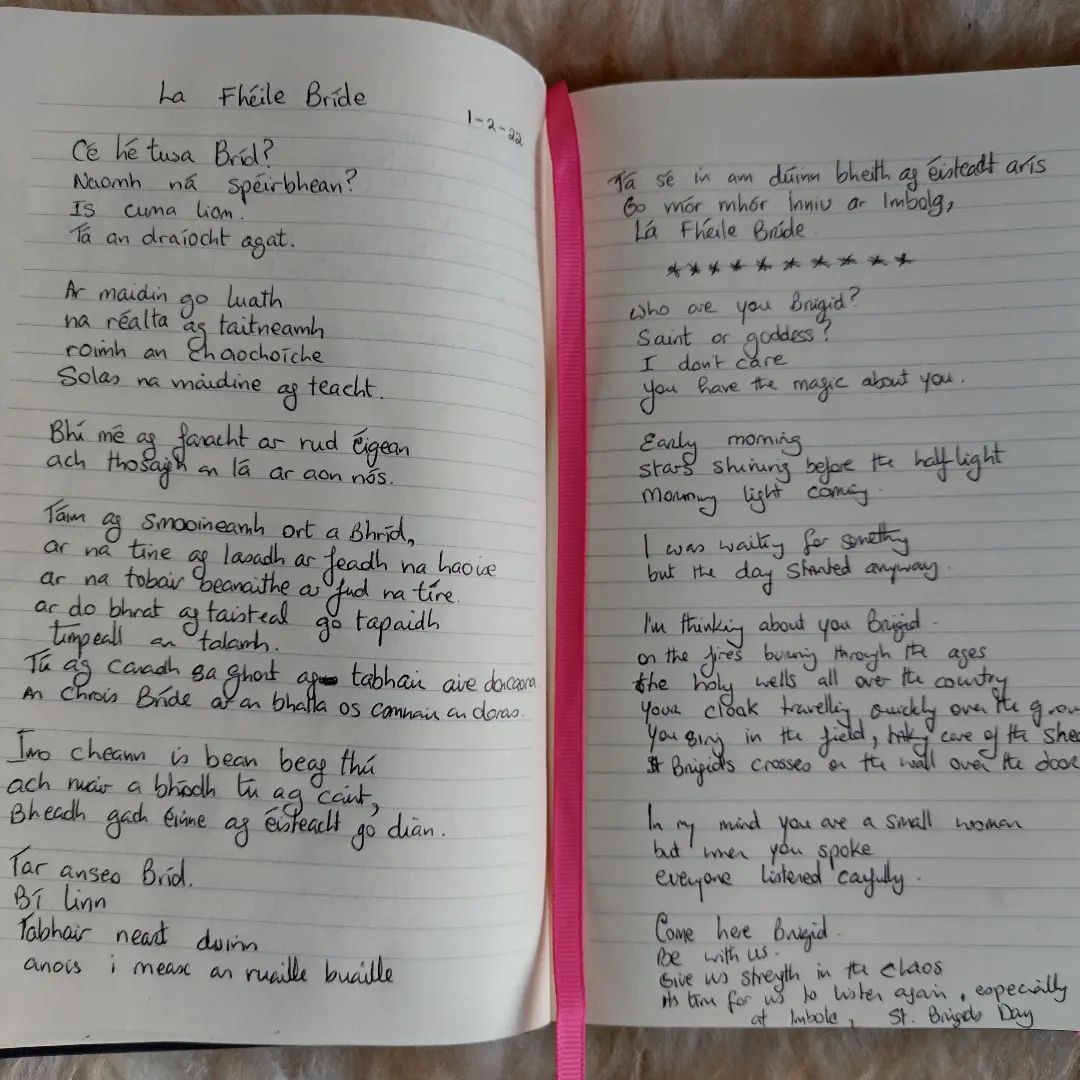 La Fhéile Bríde
1-2-22
Cé hé tusa Bríd?
Naomh ná spéirbhean?
Is cuma liom.
Tá an draíocht agat.
Ar maidin go luath
na réalta ag taitneamh
roimh an chaochoíche
Solas na maidine ag teacht.
Bhí mé ag fanacht ar rud éigean
ach thosaigh an lá ar aon nós.
Táim ag smaoineamh ort a Bhríd,
ar na tine ag lasadh ar feadh na haoise
ar na tobair beanaithe ar fud na tíre.
ar do bhrat ag taisteal go tapaidh
timpeall an talamh.
Tú ag canadh sa ghort ag tabhair aire do
An Chrois Bríde ar an bhalla os comhair an doras.
Imo cheann is bean beag thú
ach nuair a bhíodh tú ag caint,
Bheadh gach éinne ag éisteacht go dian.
Tar anseo Bríd.
Bí linn
Tabhair neart duinn
anois i measc an ruaille buaille
Tá sé in am dúinn bheith ag éisteacht arís
Go mór mhór inniu ar Imbolg,
Lá Fhéile Bríde.
**********
Who are you Brigid?
Saint or goddess?
I don't care
You have the magic about you.
Early morning
stars shining before the half light
Morning light coming.
I was waiting for something
but the day started anyway.
I'm thinking about you Brigid -
on the fires burning through the ages
the holy wells all over the country
Your cloak travelling quickly over the grou
You sing in the field, taking care of the shee
Brigid's crosses on the wall over the door
In my mind you are a small woman
but when you spoke
everyone listened carefully.
Come here Brigid.
Be with us.
Give us strength in the chaos
Its time for us to listen again, especially
at Imbolc, St. Brigids Day